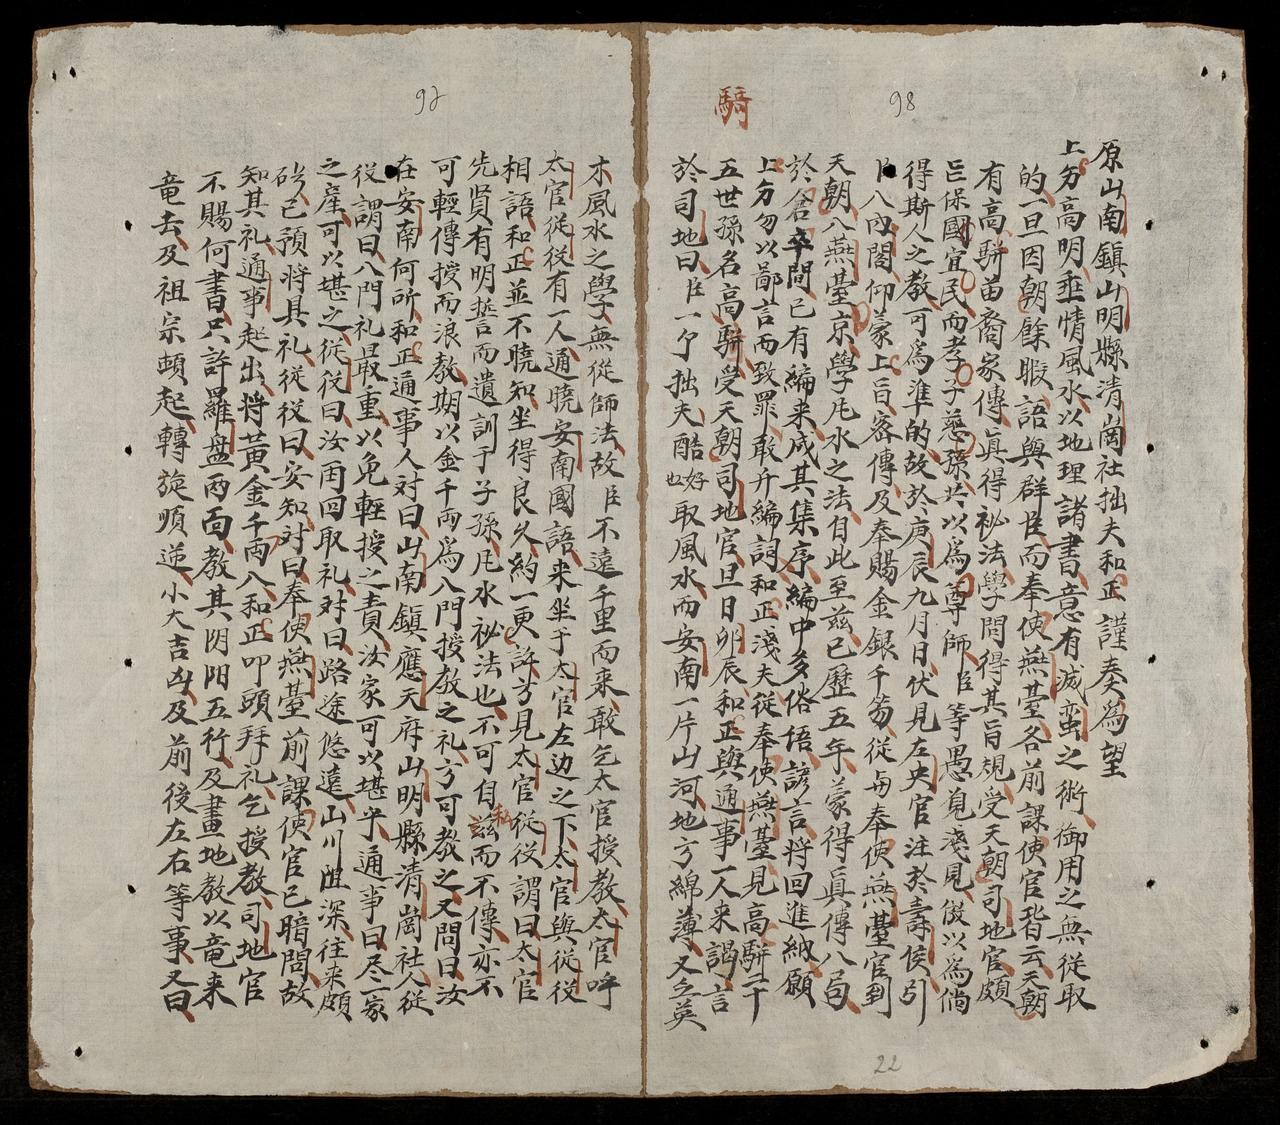 98
騎
原山南鎮山明縣清崗社拙夫和正謹奏爲望
上分高明垂情風水以地理諸書意有滅蛮之術御用之無從取
的一旦因朝餘暇語與群臣而奉使燕臺各前課使官皆云天朝
有高駢苗裔家傳眞得祕法學問得其旨規受天朝司地官頗
巨保國宜民而孝子慈孫共以爲尊師臣等愚見淺見做以爲倘
得斯人之教可爲準的故於庚辰九月日伏見左央官注於壽侯引
臣八內閣仰蒙上旨密傳及奉賜金銀千笏從每奉使燕臺官到
天朝八燕臺京學凡水之法自此至兹已歷五年蒙得眞傳八局
於倉卒間已有編来成其集序編中多俗語諺言将回進納願
上分勿以鄙言而致罪敢幷編詞和正淺夫從奉使燕臺見高駢二十
五世孫名高駢受天朝司地官旦日卯辰和正與通事一人来謁言
於司地曰臣一个拙夫酷好也取風水而安南一片山河地方綿薄又乏英
22
92
木風水之學無從師法故臣不遠千里而来敢乞太官授教太官呼
太官從從有一人通曉安南國語来坐于太官左边之下太官與從從
相語和正並不曉知坐得良久約一更許方見太官從從謂曰太官
先賢有明誓而遺訓于子孫凡水祕法也不可自私兹而不傳亦不
可輕傳授而浪教期以金千両爲八門授教之礼方可教之又問曰汝
在安南何所和正通事人対曰山南鎮應天府山明縣清崗社人從
從謂曰八門礼最重以免輕授之責汝家可以堪乎通事曰尽一家
之産可以堪之從從曰汝甬回取礼対曰路途悠遠山川阻深往来頗
碍已預将具礼從從曰安知対曰奉使燕臺前課使官已暗問故
知其礼通事起出将黃金千両八和正叩頭拜礼乞授教司地官
不賜何書只許羅盤両面教其閉阳五行及畫地教以竜来
竜去及祖宗頓起轉旋順逆小大吉凶及前後左右等事又曰